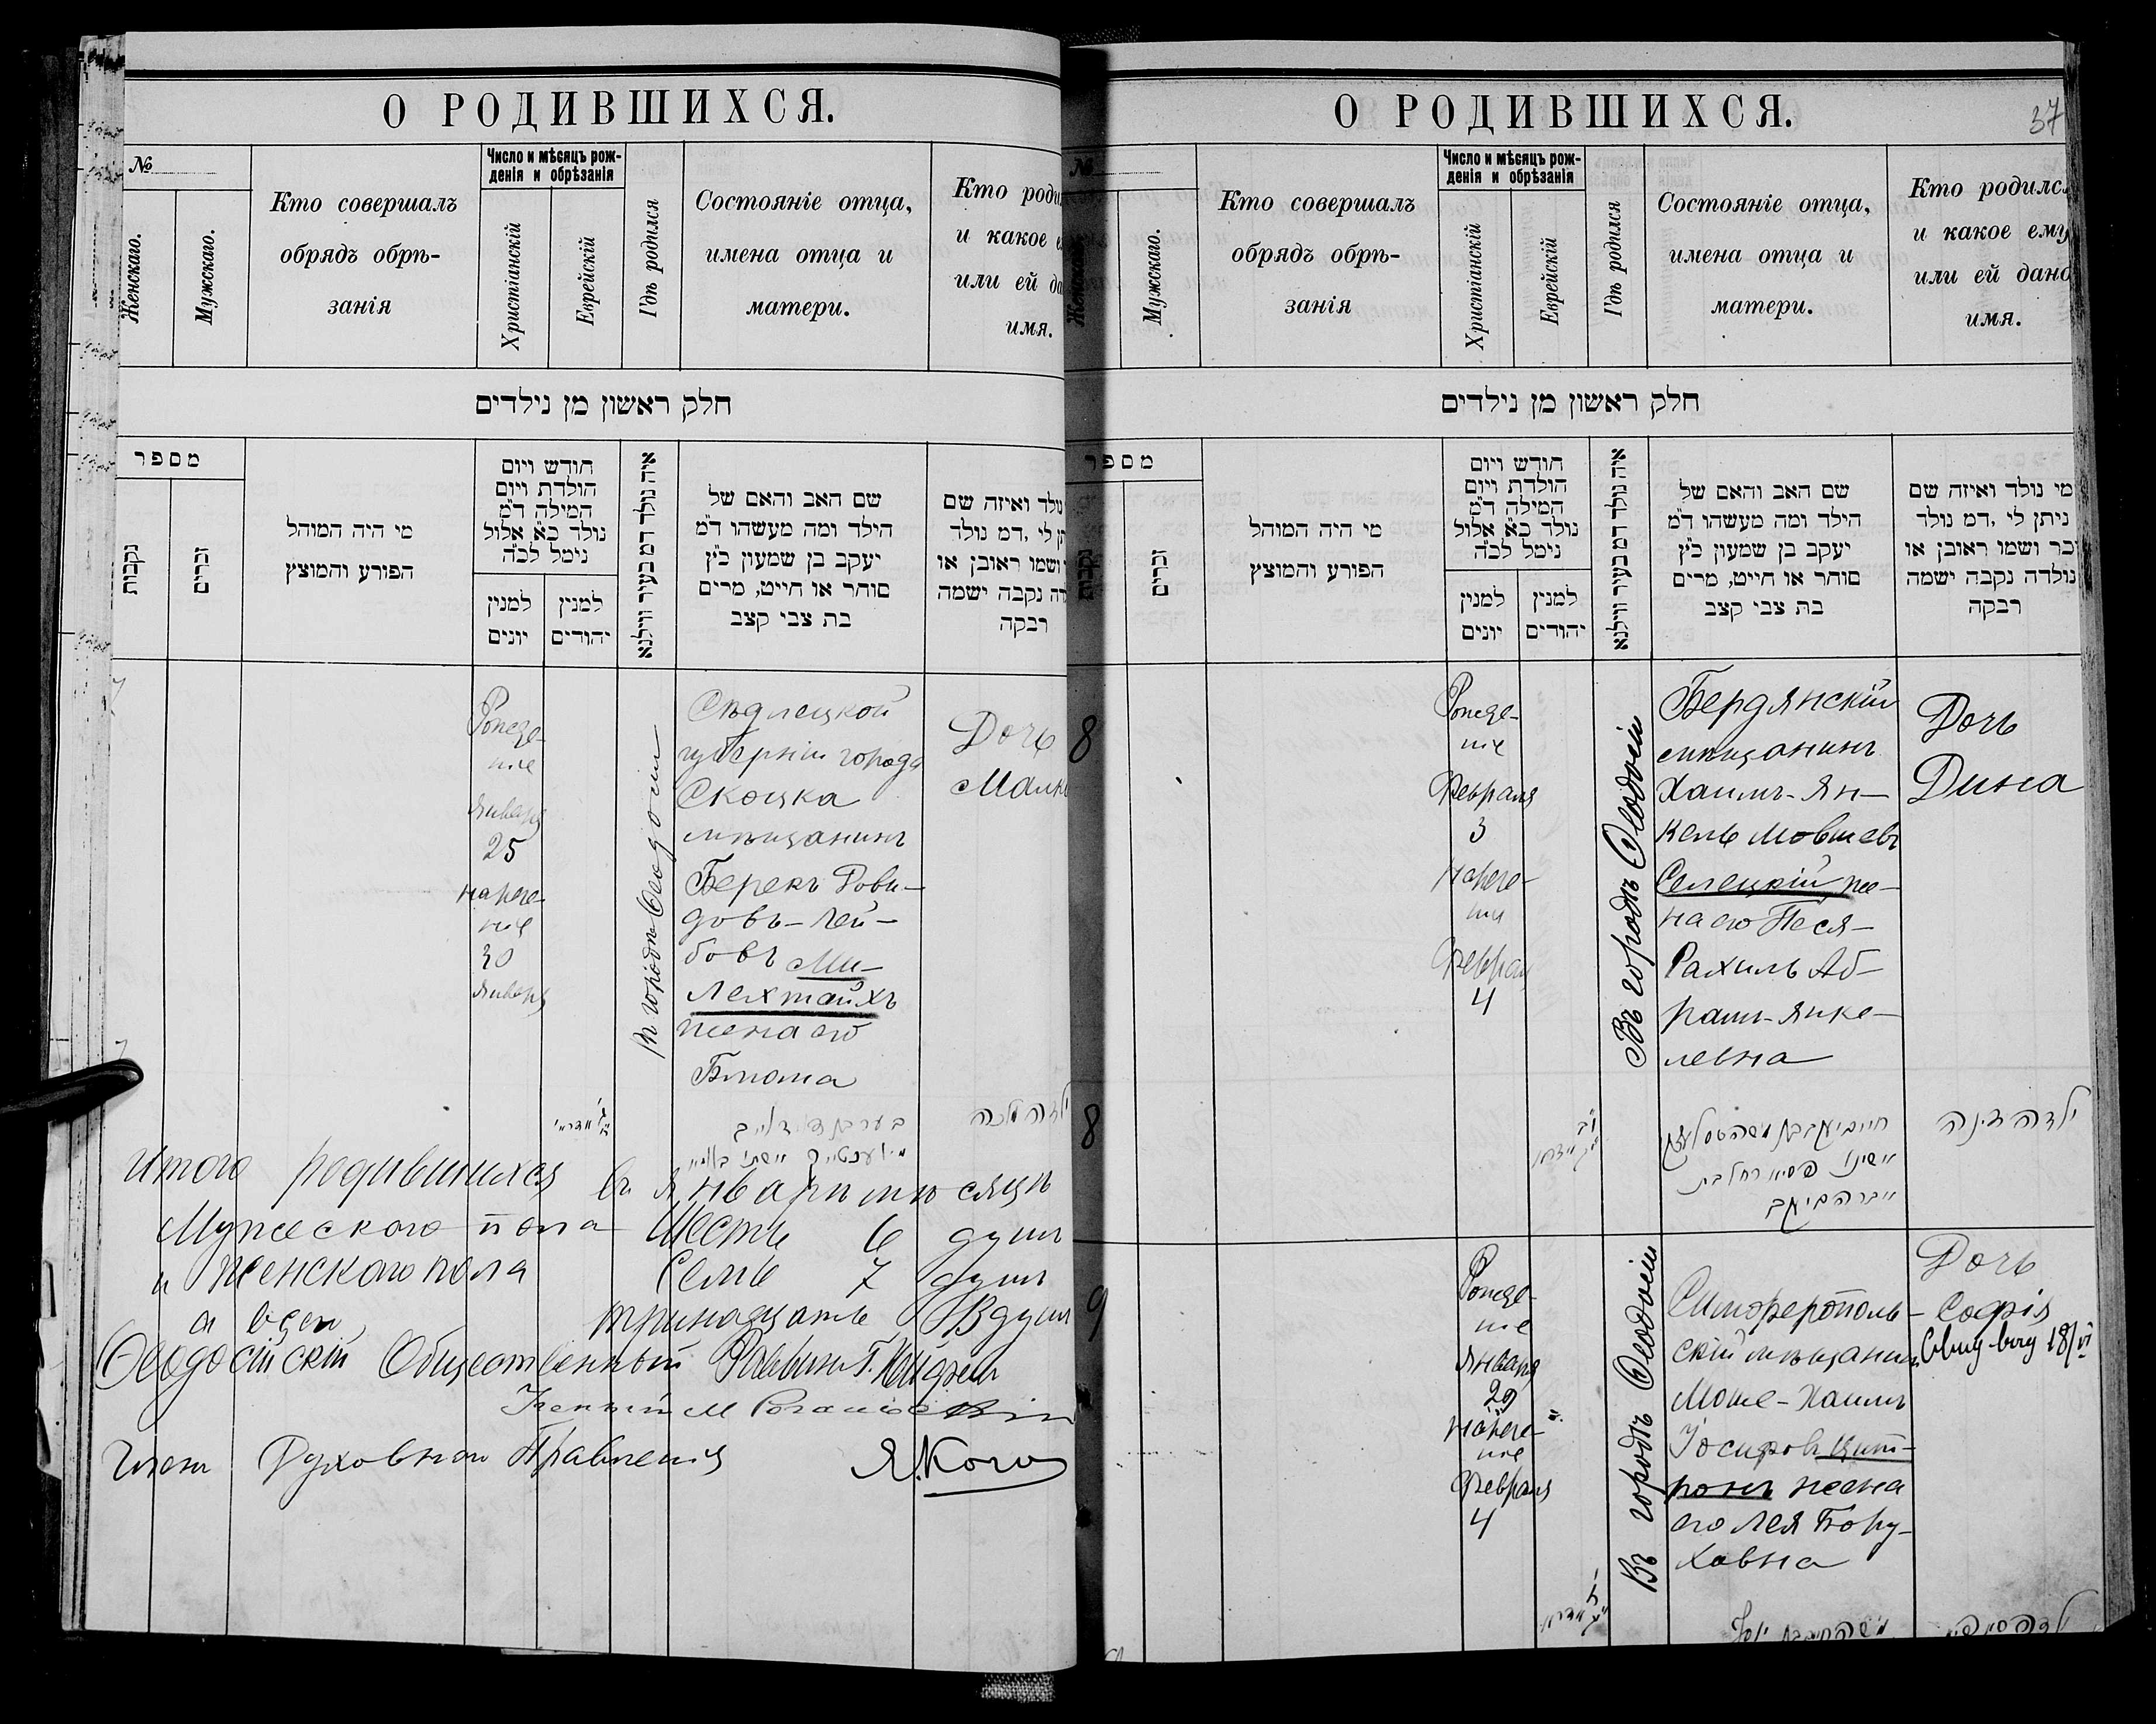 О РОДИВШИХСЯ.
№
Женскаго.
Мужскаго.
Кто совершалъ
обрядъ обрѣ-
занія
Число и мѣсяцъ рож-
денія и обрѣзанія
Христіанскій
Еврейскій
Гдѣ родился
Состояніе отца,
имена отца и
матери.
Кто роди
и какое е
или ей да
имя.
חלק ראשון מן נילדים
מספר
נקבות
זכרים
מי היה המוהל
הפורע והמוצץ
חודש ויום
הולדת ויום
המילה ד״מ
נולד כ״א אלול
נימל לכ״ה
למנין
יונים
למנין
יהודים
איה נולד דמ בעיר ווילנא
שם האב והאם של
הילד ומה מעשהו ד״מ
יעקב בן שמעון כ״ץ
סוחר או חייט, מרים
בת צבי קצב
נולד ואיזה שם
תן לי ,דמ נולד
ושמו ראובן או
דה נקבה ישמה
רבקה
7
Рожде-
ніе
Января
25
нарече-
ніе
30
Января
Въ городѣ Ѳеодосіи
Сѣдлецкой
губерніи города
Скоцка
мѣщанинъ
Берекъ Дови-
довъ-Лей-
бовъ Ми-
лехтайхъ
жена его
Блюма
Дочь
Малк
ילדה מלכה
Итого родившихся въ Январѣ мѣсяцѣ
Мужескаго пола Шесть 6 душъ
и женскаго пола Семь 7 душъ
а всего тринадцать 13 душъ
Ѳеодосійскій Общественный Раввинъ
Членъ Духовнаго Правленія Я. Кого
О РОДИВШИХСЯ.
37
№
Женскаго.
Мужскаго.
Кто совершалъ
обрядъ обрѣ-
занія
Число и мѣсяцъ рож-
денія и обрѣзанія
Христіанскій
Еврейскій
Гдѣ родился
Состояніе отца,
имена отца и
матери.
Кто родилс
и какое ему
или ей дано
имя.
חלק ראשון מן נילדים
מספר
נקבות
זכרים
מי היה המוהל
הפורע והמוצץ
חודש ויום
הולדת ויום
המילה ד״מ
נולד כ״א אלול
נימל לכ״ה
למנין
יונים
למנין
יהודים
איה נולד דמ בעיר ווילנא
שם האב והאם של
הילד ומה מעשהו ד״מ
יעקב בן שמעון כ״ץ
סוחר או חייט, מרים
בת צבי קצב
מי נולד ואיזה שם
ניתן לי ,דמ נולד
זכר ושמו ראובן או
נולדה נקבה ישמה
רבקה
8
Рожде-
ніе
Февраля
3
Нарече-
ніе
Февраля
4
Въ городѣ Ѳеодосіи
Бердянскій
мѣщанинъ
Хаимъ-Ян-
кель Мовшевъ
Селецкій же-
на его Песя-
Рахиль Аб-
рамъ-Янке-
левна
Дочь
Дина
8
ילדה דינה
9
Рожде-
ніе
Января
29
Нарече-
ніе
Февраля
4
Въ городѣ Ѳеодосіи
Симферополь-
скій мѣщанинъ
Моше-Хаимъ
Іосифовъ Цит-
ронъ жена
его Лея Бору-
ховна
Дочь
Софія